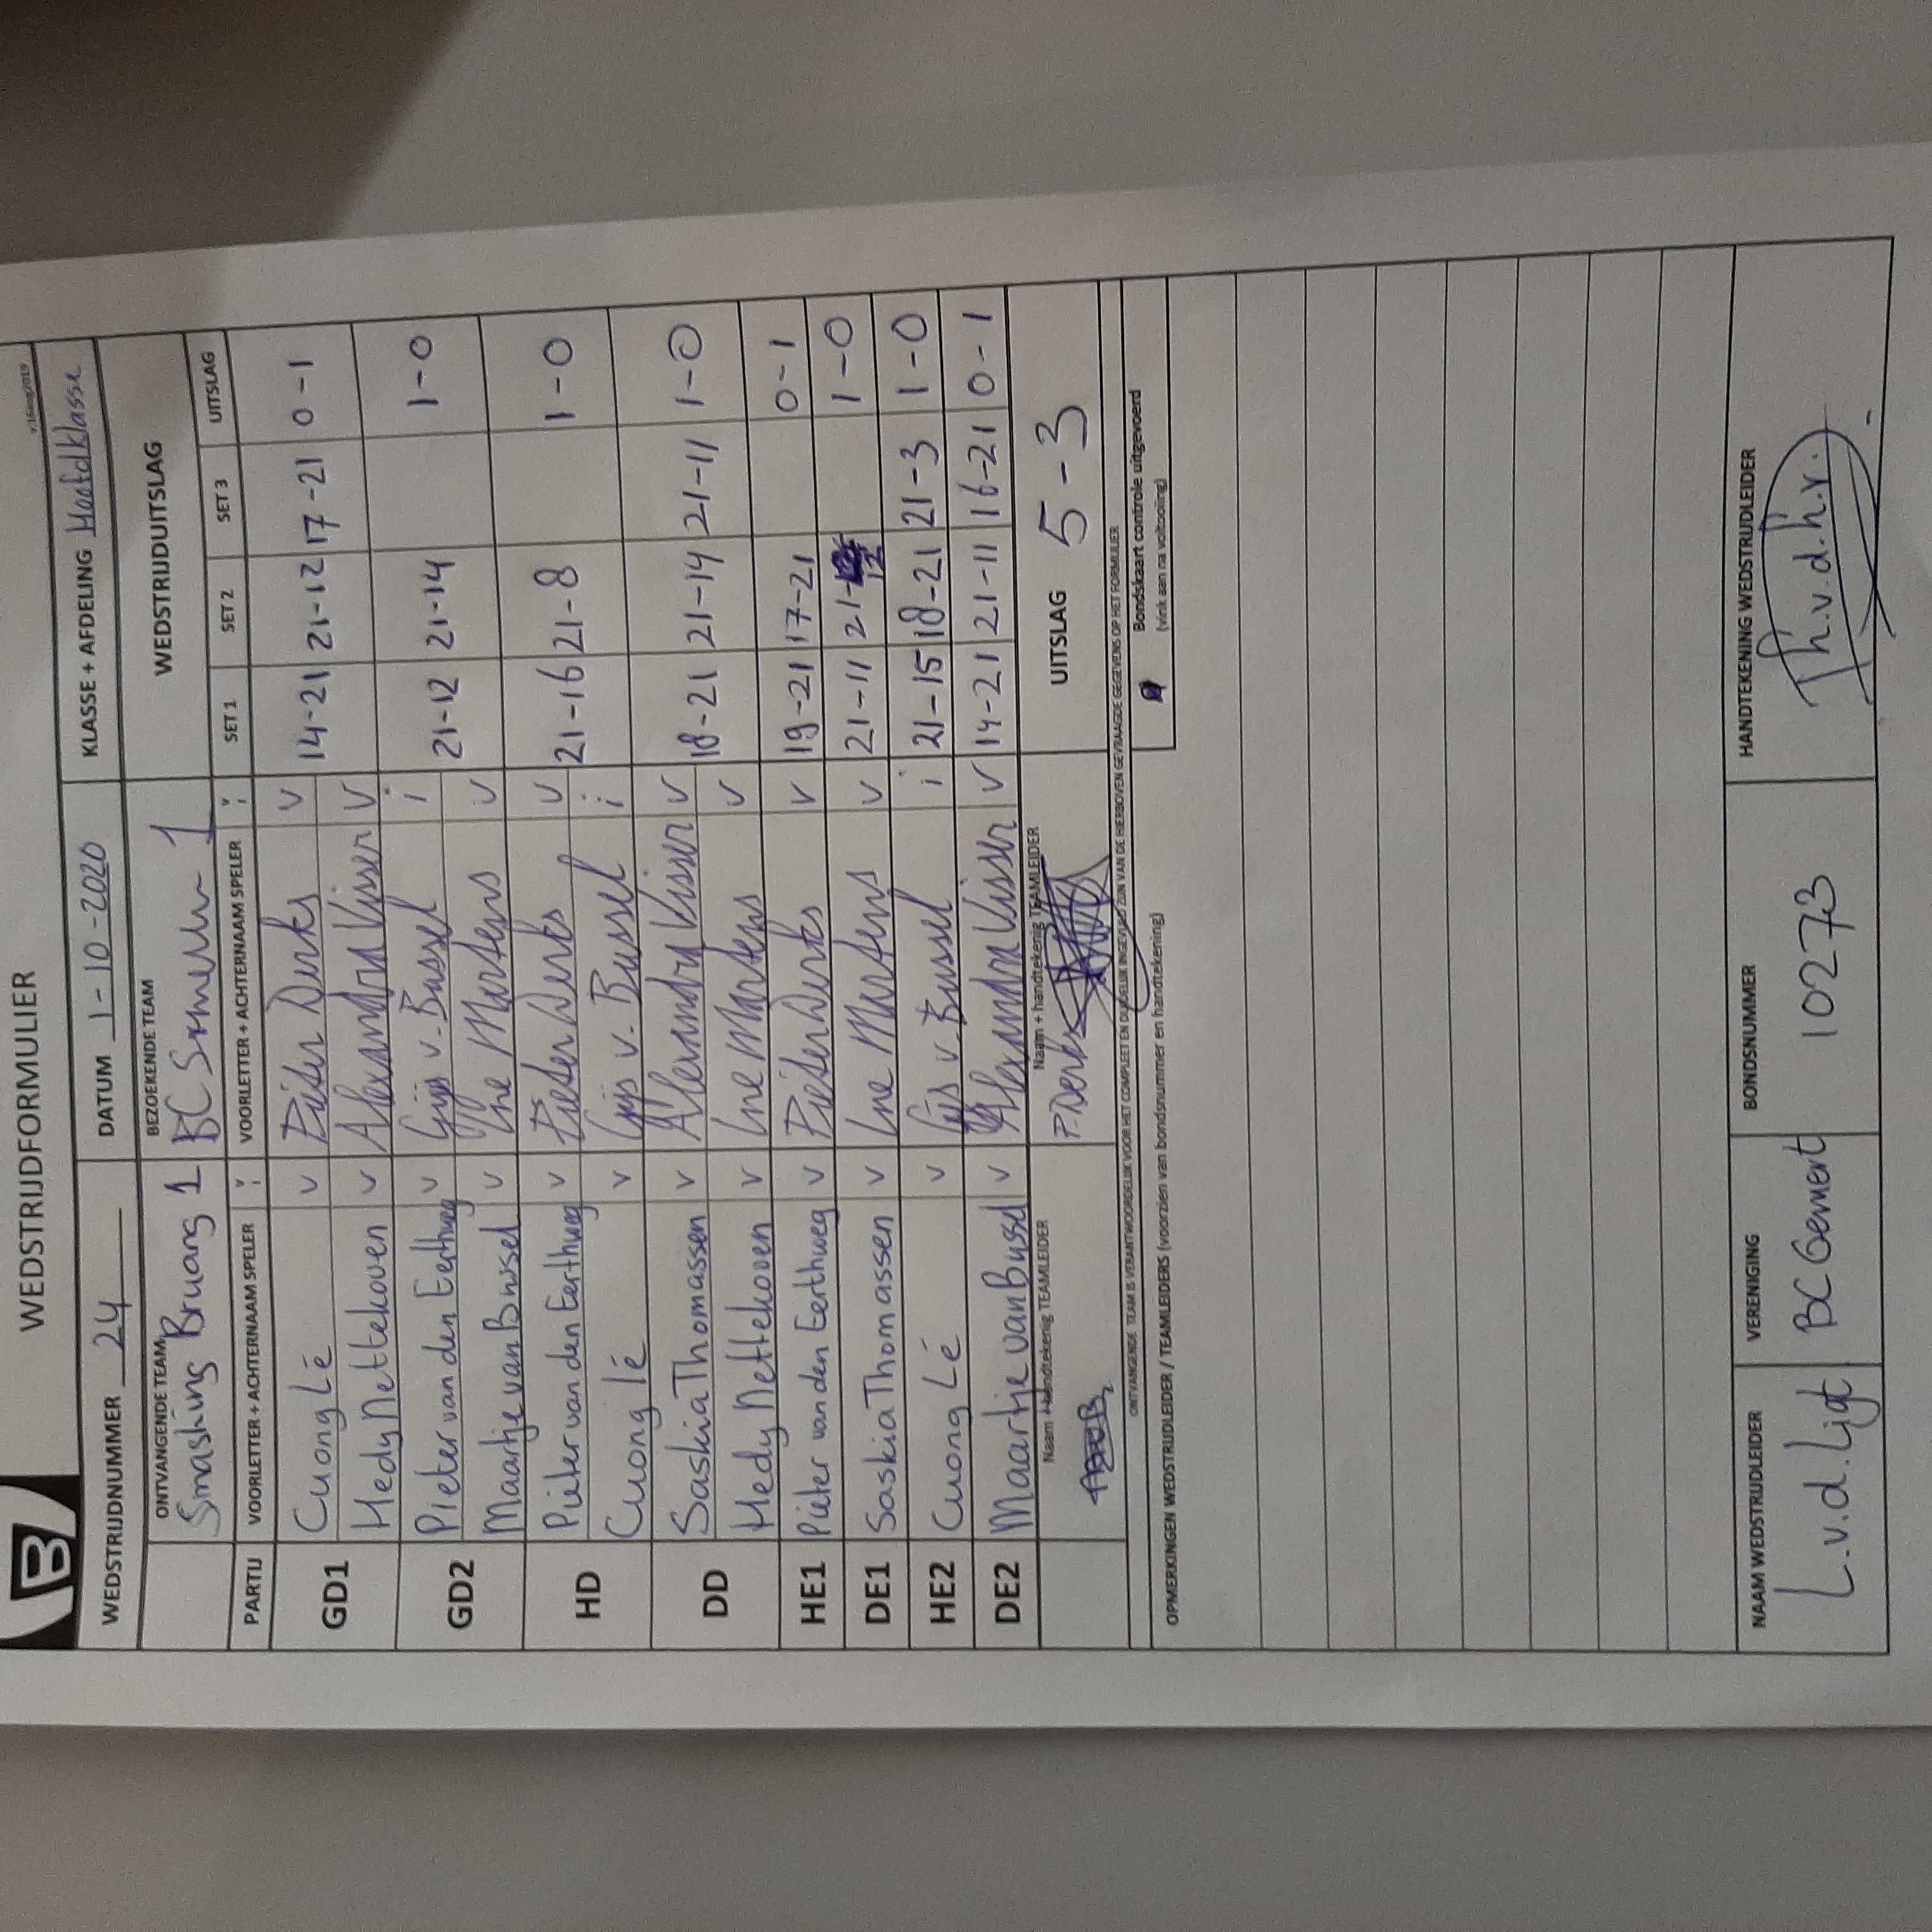 WEDSTRIJDFORMULIER
B
WEDSTRIJDNUMMER 24 DATUM 1-10-2020 KLASSE + AFDELING Hoofdklasse
ONTVANGENDE TEAM BEZOEKENDE TEAM WEDSTRIJDUITSLAG
Smashing Bruang 1 BC 1
PARTIJ VOORLETTER + ACHTERNAAM SPELER V i VOORLETTER + ACHTERNAAM SPELER V i SET 1 SET 2 SET 3 UITSLAG
GD1 Cuong Lé v Pieter Derks v 14-21 21-12 17-21 0-1
Hedy Nettekoven v Alexandra Visser v
GD2 Pieter van den Eerthweg v Gijs v. Bussel i 21-12 21-14 1-0
Maartje van Bussel v Ine Martens v
HD Pieter van den Eerthweg v Pieter Derks v 21-16 21-8 1-0
Cuong Lé v Gijs v. Bussel i
DD Saskia Thomassen v Alexandra Visser v 18-21 21-14 21-11 1-0
Hedy Nettekoven v Ine Martens v
HE1 Pieter van den Eerthweg v Pieter Derks v 19-21 17-21 0-1
DE1 Saskia Thomassen v Ine Martens v 21-11 21-12 1-0
HE2 Cuong Lé v Gijs v. Bussel i 21-15 18-21 21-3 1-0
DE2 Maartje van Bussel v Alexandra Visser v 14-21 21-11 16-21 0-1
Naam + handtekenig TEAMLEIDER Naam + handtekenig TEAMLEIDER UITSLAG 5-3
P. Derks
ONTVANGENDE TEAM IS VERANTWOORDELIJK VOOR HET COMPLEET EN DUIDELIJK INGEVULD ZIJN VAN DE HIERBOVEN GEVRAAGDE GEGEVENS OP HET FORMULIER
Bondskaart controle uitgevoerd
(vink aan na voltooiing)
OPMERKINGEN WEDSTRIJDLEIDER / TEAMLEIDERS (voorzien van bondsnummer en handtekening)
NAAM WEDSTRIJDLEIDER VERENIGING BONDSNUMMER HANDTEKENING WEDSTRIJDLEIDER
L.v.d. Ligt BC Gemert 10273